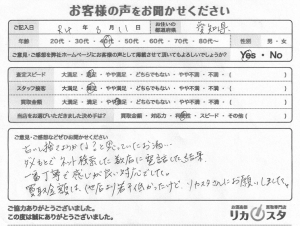 お客様の声をお聞かせください
ご記入日 年 6 月 11 日 お住いの都道府県 愛知県
年齢 20代・30代・40代・50代・60代・70代・80代〜 性別 男・女
ご意見・ご感想を弊社ホームページにお客様の声として掲載させて頂いてもよろしいでしょうか？ Yes・No
査定スピード 大満足・満足・やや満足・どちらでもない・やや不満・不満・( )
スタッフ接客 大満足・満足・やや満足・どちらでもない・やや不満・不満・( )
買取金額 大満足・満足・やや満足・どちらでもない・やや不満・不満・( )
当店をお選びいただきました決め手は？ 買取金額・対応力・利便性・スピード・その他( )
ご意見・ご感想などぜひお聞かせください
古い物でよかなと笑っていたお酒。
ネット検索した数店に電話した結果、
一番丁寧で感じが良い対応でした。
買取金額は、他店より若干低かったけど、リカスタさんにお願いしました。
ご協力ありがとうございました。
この度は誠にありがとうございました。
お酒高価買取専門店
リカスタ